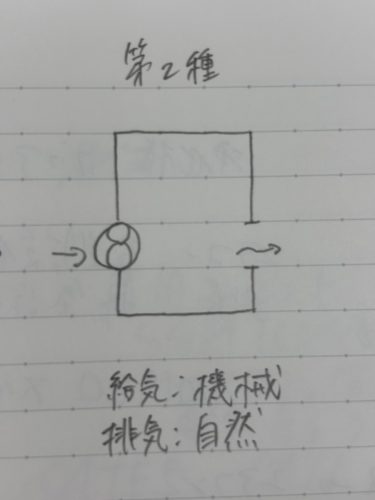 第2種
給気:機械
排気:自然